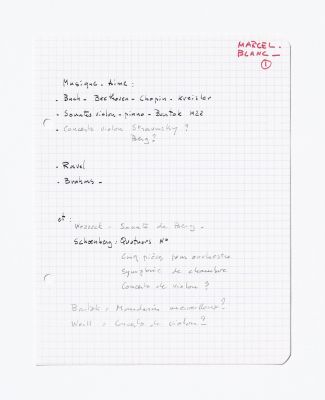 MARCEL.
BLANC_
1
Musique. aime:
. Bach - Beethoven - Chopin - Kreisler
. Sonates violon - piano - Bartok
. Concerto violon Stravinsky?
Berg?
. Ravel
. Brahms -
et :
Wozzeck - Sonate de Berg.
Schoenberg: Quatuors N°
Cinq pièces pour orchestre
Symphonie de chambre
Concerto de violon?
Bartok: Mandarin merveilleux?
Weill: Concerto de violon?